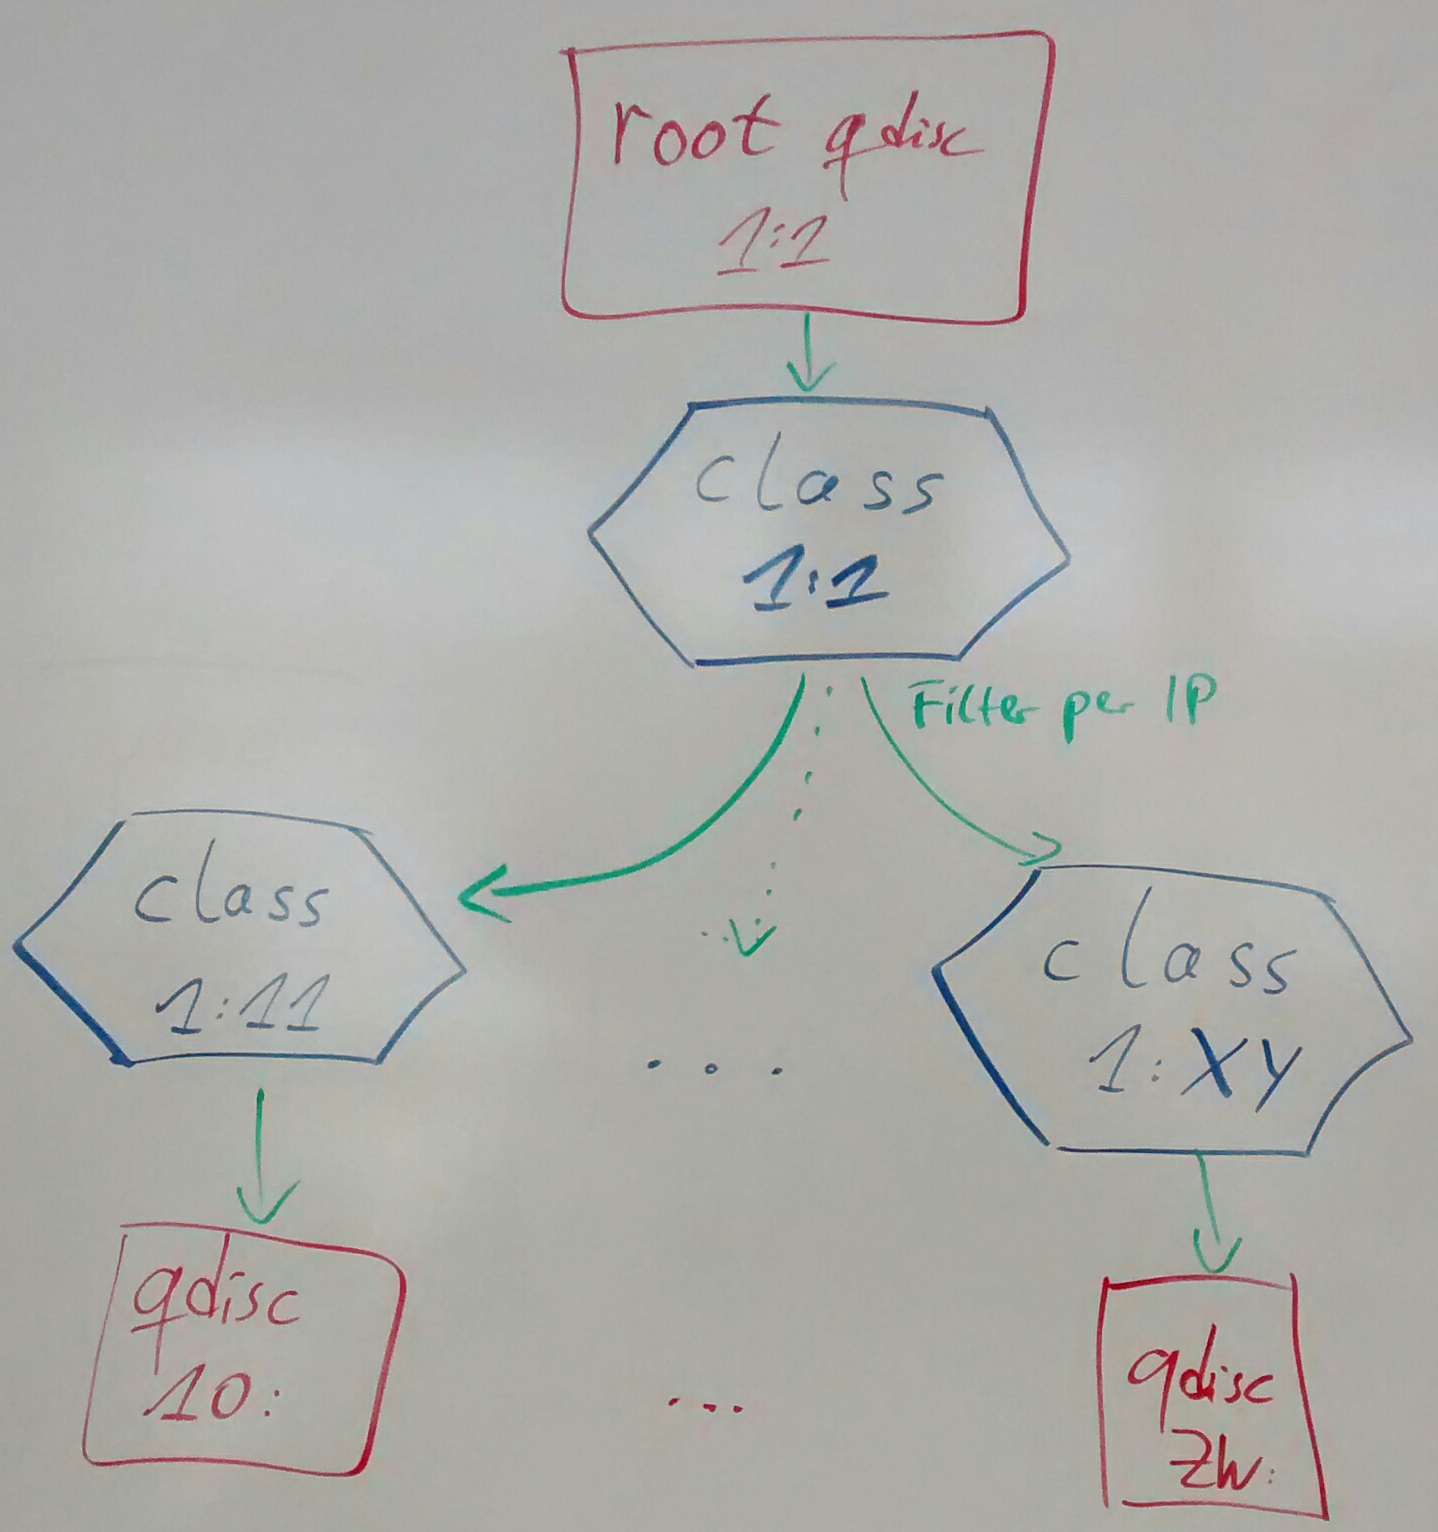 root qdisc
1:1
class
1:1
Filter per IP
class
1:11
class
1:XY
...
qdisc
10:
...
qdisc
ZW: